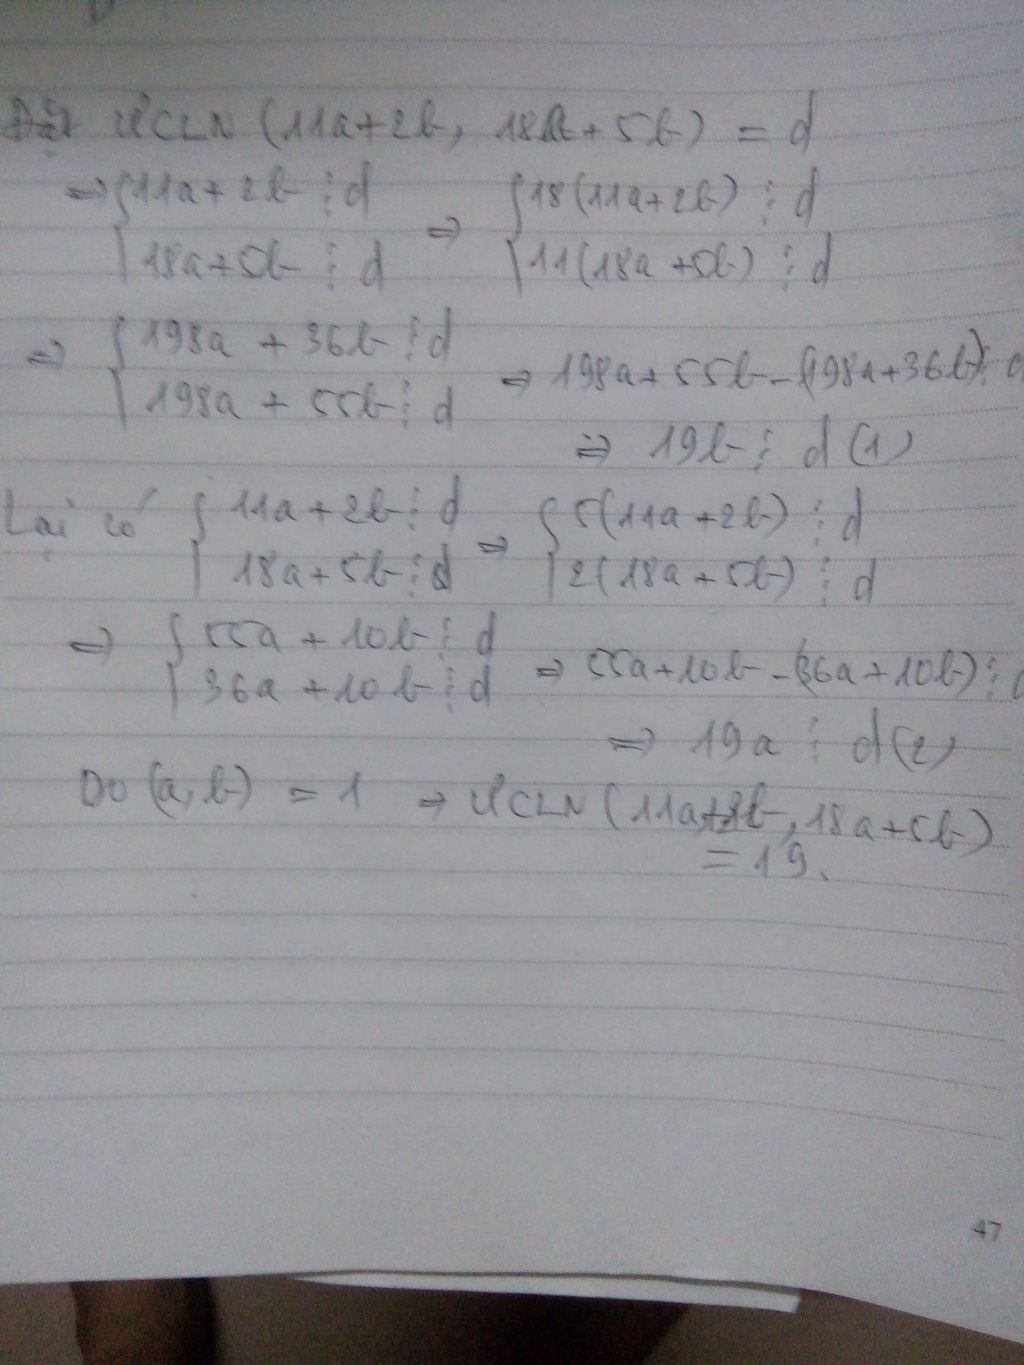 Đặt ƯCLN (11a+2b, 18a+5b) = d
⇒ { 11a+2b ⋮ d ⇒ { 18(11a+2b) ⋮ d
18a+5b ⋮ d 11(18a+5b) ⋮ d
⇒ { 198a + 36b ⋮ d
198a + 55b ⋮ d ⇒ 198a+55b-(198a+36b) ⋮ d
⇒ 19b ⋮ d (1)
Lại có { 11a+2b ⋮ d ⇒ { 5(11a+2b) ⋮ d
18a+5b ⋮ d 2(18a+5b) ⋮ d
⇒ { 55a + 10b ⋮ d
36a +10b ⋮ d ⇒ 55a+10b-(36a+10b) ⋮ d
⇒ 19a ⋮ d (2)
Do (a,b) = 1 ⇒ ƯCLN (11a+2b, 18a+5b)
= 19.
47